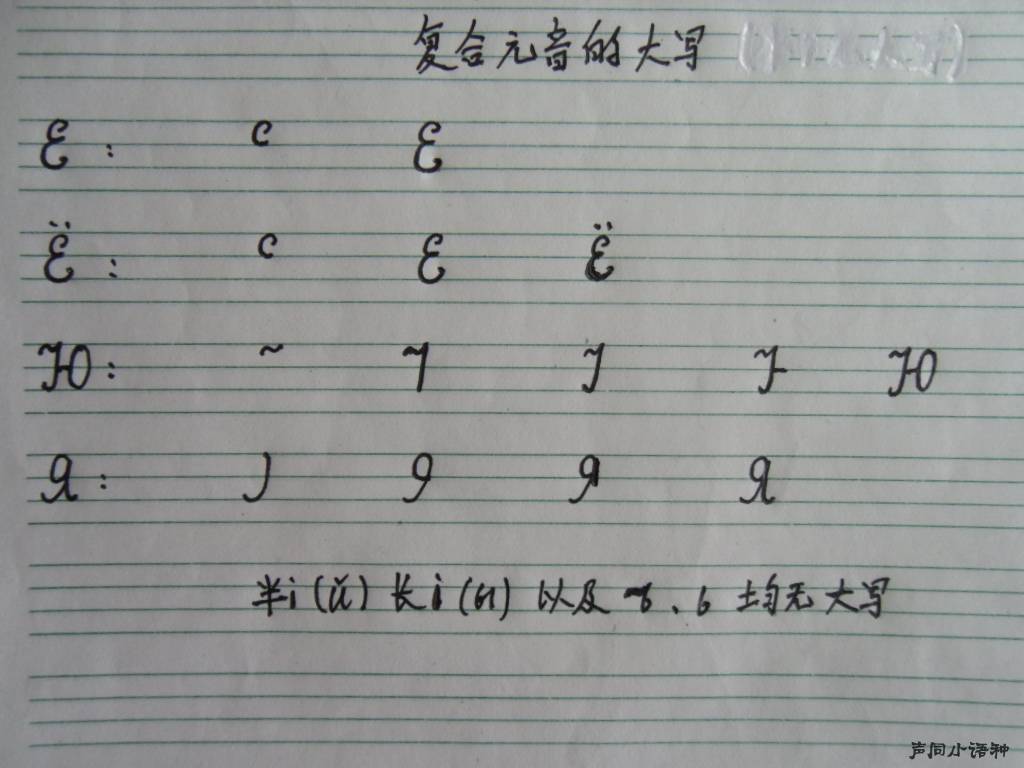 复合元音的大写
Е: с Е
Ё: с Е Ё
Ю: ~ Ю
Я: Я
半i(й) 长i(ы) 以及 ъ、ь 均无大写
声同小语种